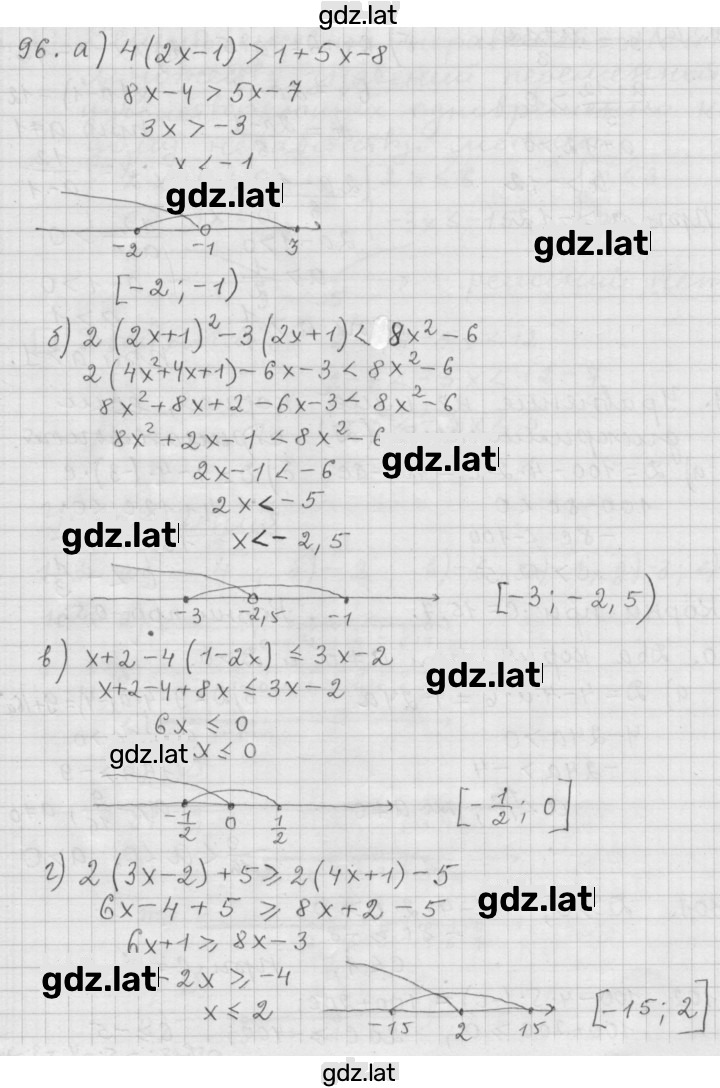 gdz.lat
96. а) 4(2x-1) > 1+5x-8
8x-4 > 5x-7
3x > -3
x < -1
gdz.lat
gdz.lat
-2 -1 3
[-2; -1)
б) 2(2x+1)²-3(2x+1) < 8x²-6
2(4x²+4x+1)-6x-3 < 8x²-6
8x²+8x+2-6x-3 < 8x²-6
8x²+2x-1 < 8x²-6
gdz.lat
2x-1 < -6
2x < -5
gdz.lat
x < -2,5
-3 -2,5 -1 [-3; -2,5)
в) x+2-4(1-2x) ≤ 3x-2
gdz.lat
x+2-4+8x ≤ 3x-2
6x ≤ 0
gdz.lat x ≤ 0
-1/2 0 1/2 [-1/2; 0]
г) 2(3x-2)+5 ≥ 2(4x+1)-5
gdz.lat
6x-4+5 ≥ 8x+2-5
6x+1 ≥ 8x-3
gdz.lat -2x ≥ -4
x ≤ 2
-15 2 15 [-15; 2]
gdz.lat